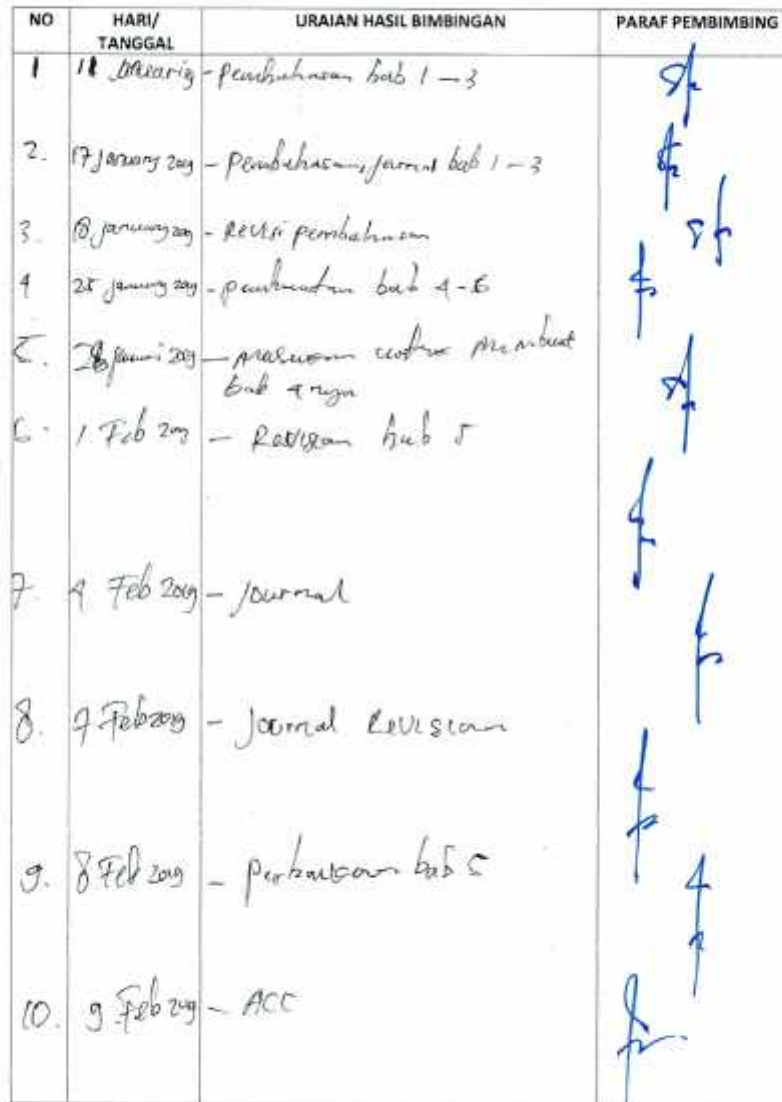 NO HARI/ TANGGAL URAIAN HASIL BIMBINGAN PARAF PEMBIMBING
1 11 - pembahasan bab 1 - 3
2. 17 january 2019 - pembahasan, jurnal bab 1 - 3
3. january 2019 - Revisi pembahasan
4 25 january 2019 - pembuatan bab 4-5
5. 2019 - untuk membuat
bab 4 nya
6. 1 Feb 2019 - Revisian bab 5
7. 4 Feb 2019 - journal
8. 7 Feb 2019 - Journal Revisian
9. 8 Feb 2019 - perbaikan bab 5
10. 9 Feb 2019 - ACC